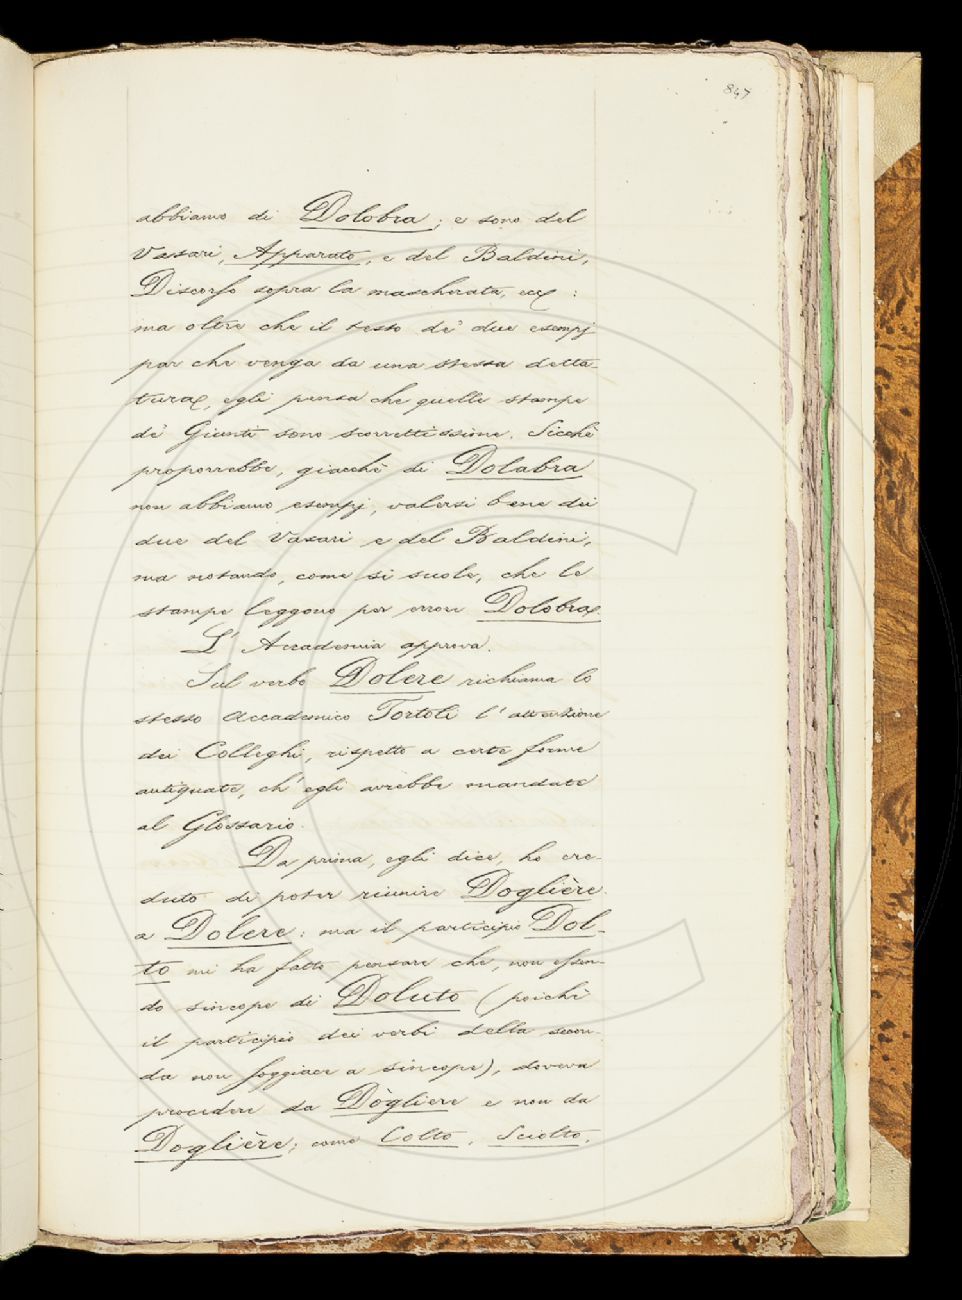 847
abbiamo di Dolobra; e sono del
Vasari, Apparato, e del Baldini,
Discorso sopra la mascherata, ecc:
ma oltre che il testo de' due esempj
par che venga da una stessa detta-
tura, egli pensa che quelle stampe
de' Giunti sono scorrettissime. Sicchè
proporrebbe, giacchè di Dolabra
non abbiamo esempj, valersi bene dei
due del Vasari e del Baldini,
ma notando, come si suole, che le
stampe leggono per errore Dolobra.
L'Accademia approva.
Sul verbo Dolere richiama lo
stesso Accademico Tortoli l'attenzione
dei Colleghi, rispetto a certe forme
antiquate, ch'egli avrebbe mandate
al Glossario.
Da prima, egli dice, ho cre-
duto di poter riunire Doglière
a Dolere: ma il participio Dol-
to mi ha fatto pensare che, non essen-
do sincope di Doluto (poichè
il participio dei verbi della secon-
da non soggiace a sincope), doveva
procedere da Dògliere e non da
Doglière; come Colto, Sciolto,